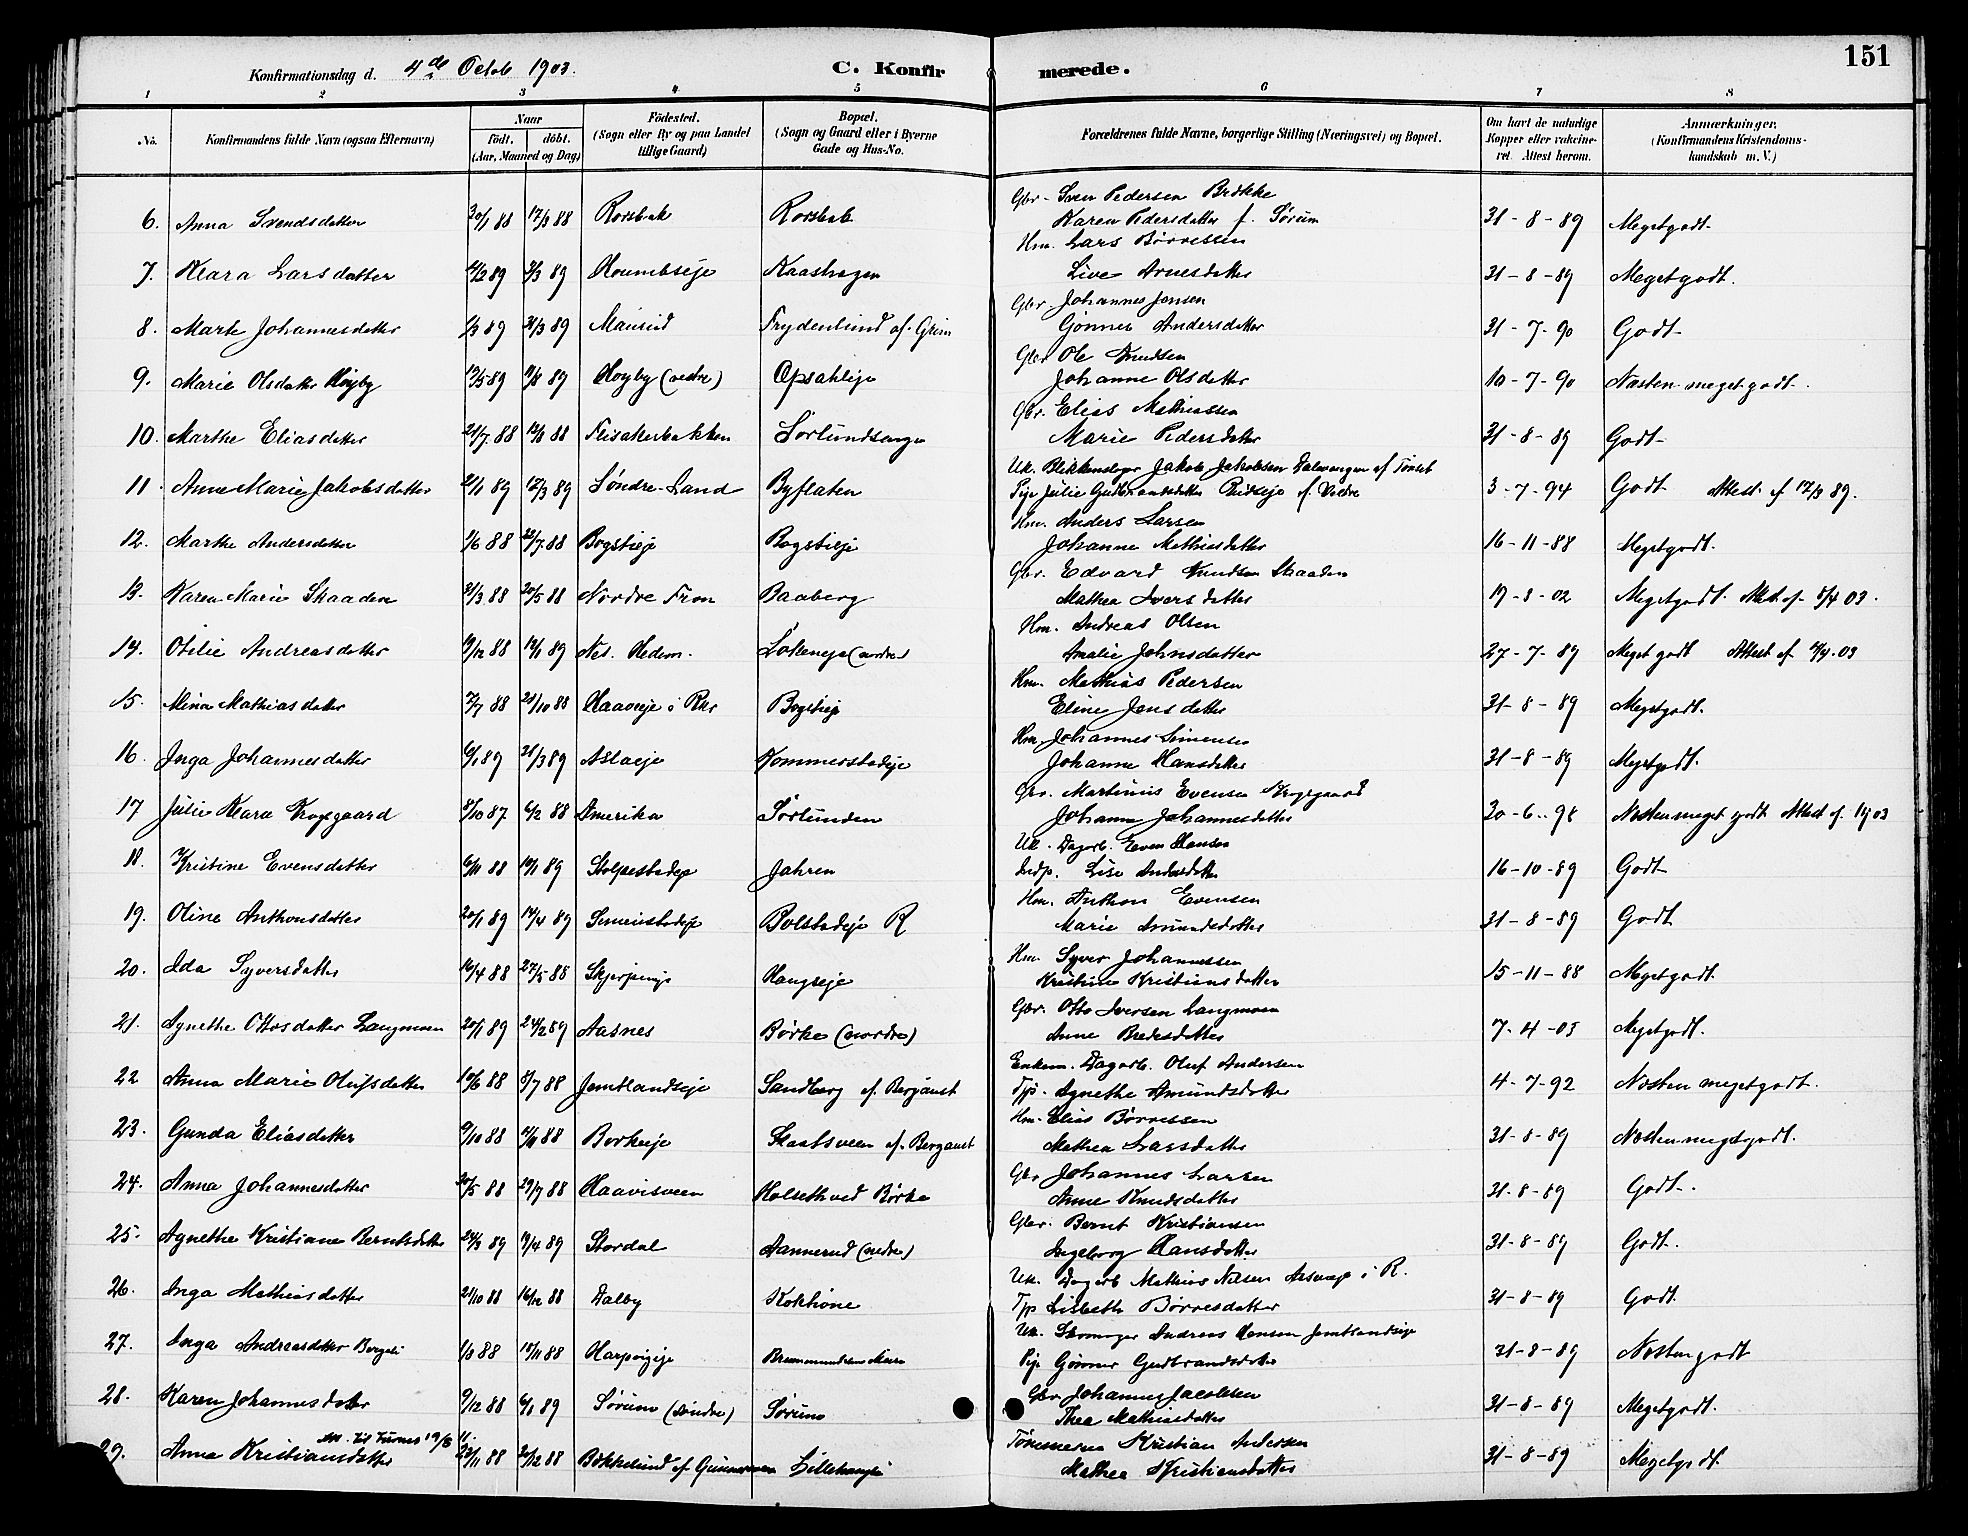 Konfirmationsdag d. 4de Octob 1903. C. Konfirmerede. 151
1 2 3 4 5 6 7 8
No. Konfirmandens fulde Navn (ogsaa Efternavn) Naar født. døbt. (Aar, Maaned og Dag) Fødested. (Sogn eller By og paa Landet tillige Gaard) Bopæl. (Sogn og Gaard eller i Byerne Gade og Hus-No. Forældrenes fulde Navne, borgerlige Stilling (Næringsvei) og Bopæl. Om havt de naturlige Kopper eller vakcineret. Attest herom. Anmærkninger. (Konfirmandens Kristendomskundskab m. V.)
Gbr. Sven Pedersen Brække
6. Anna Svendsdatter 30/1 88 17/3 88 Rorsbak Rorsbak Karen Pedersdatter f. Sørum 31-8-89 Megetgodt.
Hm. Lars Børresen
7. Klara Larsdatter 4/2 89 3/3 89 Houmbseje Kaashagen Live Arnesdatter 31-8-89 Megetgodt.
Gbr. Johannes Jensen
8. Marte Johannesdatter 1/3 89 31/3 89 Mausud Frydenlund af. Grim Gønner Andersdatter 31-7-90 Godt
Gbr. Ole Knudsen
9. Marie Olsdatter Høyby 12/5 89 11/8 89 Høyby (vestre) Opsahleje Johanne Olsdatter 10-7-90 Næsten megetgodt.
Gbr. Elias Mathiassen
10. Marthe Eliasdatter 21/7 88 12/8 88 Flisakerbakken Sørlundsenge Marie Pedersdatter 31-8-89 Godt
Uk. Blikkenslager Jakob Jakobsen Dalevangen af Tønset
11. Anne Marie Jakobsdatter 21/1 89 17/3 89 Søndre-Land Byflaten Pige Julie Gudbrandsdatter 3-7-94 Godt Attest af 17/3 89.
Hm. Anders Larsen
12. Marthe Andersdatter 1/6 88 22/7 88 Bogstieje Bogstieje Johanne Mathiasdatter 16-11-88 Megetgodt.
Gbr. Edvard Knudsen Skaaden
13. Karen Marie Skaaden 31/3 88 20/5 88 Nordre Fron Baaberg Mathea Iversdatter 19-8-02 Megetgodt. Attest af 5/4 03.
Hm. Andreas Olsen
14. Otilie Andreasdatter 19/12 88 13/1 89 Nes. Hedem. Løkeneje (nordre) Amalie Johnsdatter 27-7-89 Meget godt Attest af 4/4.03
Hm. Mathias Pedersen
15. Mina Mathiasdatter 7/7 88 21/10 88 Haaveje i Rbr Bogstieje Eline Jensdatter 31-8-89 Megetgodt.
Hm. Johannes Simensen
16. Inga Johannesdatter 6/1 89 31/3 89 Aslaeje Kommerstadeje Johanne Hansdatter 31-8-89 Megetgodt.
Gbr. Martinius Evensen Krogsgaard
17 Julie Klara Krogsgaard 8/10 87 6/2 88 Amerika Sørlunden Johanne Johannesdatter 30-6-98 Næsten meget godt Attest af. 1903
Uk. Dagarb. Even Hansen
18. Kristine Evensdatter 6/11 88 19/1 89 Stolpestadeje Jahren Indp. Lise Andersdatter 16-10-89 Godt
Hm. Anthon Evensen
19. Oline Anthonsdatter 20/1 89 14/4 89 Simenstadeje Bolstadeje R Marie Amundsdatter 31-8-89 Godt.
Hm Syver Johannessen
20. Ida Syversdatter 16/4 88 27/5 88 Skjerpinge Haugseje Kristine Kristiansdatter 15-11-88 Megetgodt.
Gbr. Otto Iversen Langmoen
21. Agnethe Ottosdatter Langmoen 20/1 89 24/2 89 Aasnes Børke (nordre) Anne Bredesdatter 7-4-03 Megetgodt.
Enkem. Dagarb. Oluf Andersen
22 Anna Marie Olufsdatter 10/6 88 8/7 88 Jemtlandseje Sandberg af. Bergaust Tjp. Agnethe Amundsdatter 4-7-92 Næsten megetgodt.
Hm. Elias Børresen
23. Gunda Eliasdatter 9/10 88 4/11 88 Borkeeje Skaatsveen af. Bergaust Mathea Larsdatter 31-8-89 Næsten megetgodt.
Gbr Johannes Larsen
24. Anna Johannesdatter 20/5 88 29/7 88 Haavisveen Holseth ved Børke Anne Knudsdatter 31-8-89 Godt.
Gbr. Bernt Kristiansen
25. Agnethe Kristiane Berntsdatter 24/3 89 19/4 89 Stordal Aannerud (nedre) Ingeborg Hansdatter 31-8-89 Godt.
Uk. Dagarb Mathias Nilsen i R.
26. Inga Mathiasdatter 21/10 88 16/12 88 Dalby Koktione Tjp Lisbeth Børresdatter 31-8-89 Godt.
Uk. Skomager Andreas Hansen Jemtlandseje
27. Inga Andreasdatter Bergeli 1/8 88 18/11 88 Harpvigeje Brummundens Moen Pige Gønner Gudbrandsdatter 31-8-89 Næsten godt
Gbr Johannes Jacobsen
28. Karen Johannesdatter 9/12 88 6/1 89 Sørum (søndre) Sørum Thea Mathiasdatter 31-8-89 Megetgodt.
Att. til Furnes 19/8 11.
Tømmermand Kristian Andersen
29. Anna Kristiansdatter 23/11 88 26/12 88 Bækkelund af Gunnarsveen Lillehaugli Mathea Kristiansdatter 31-8-89 Megetgodt.